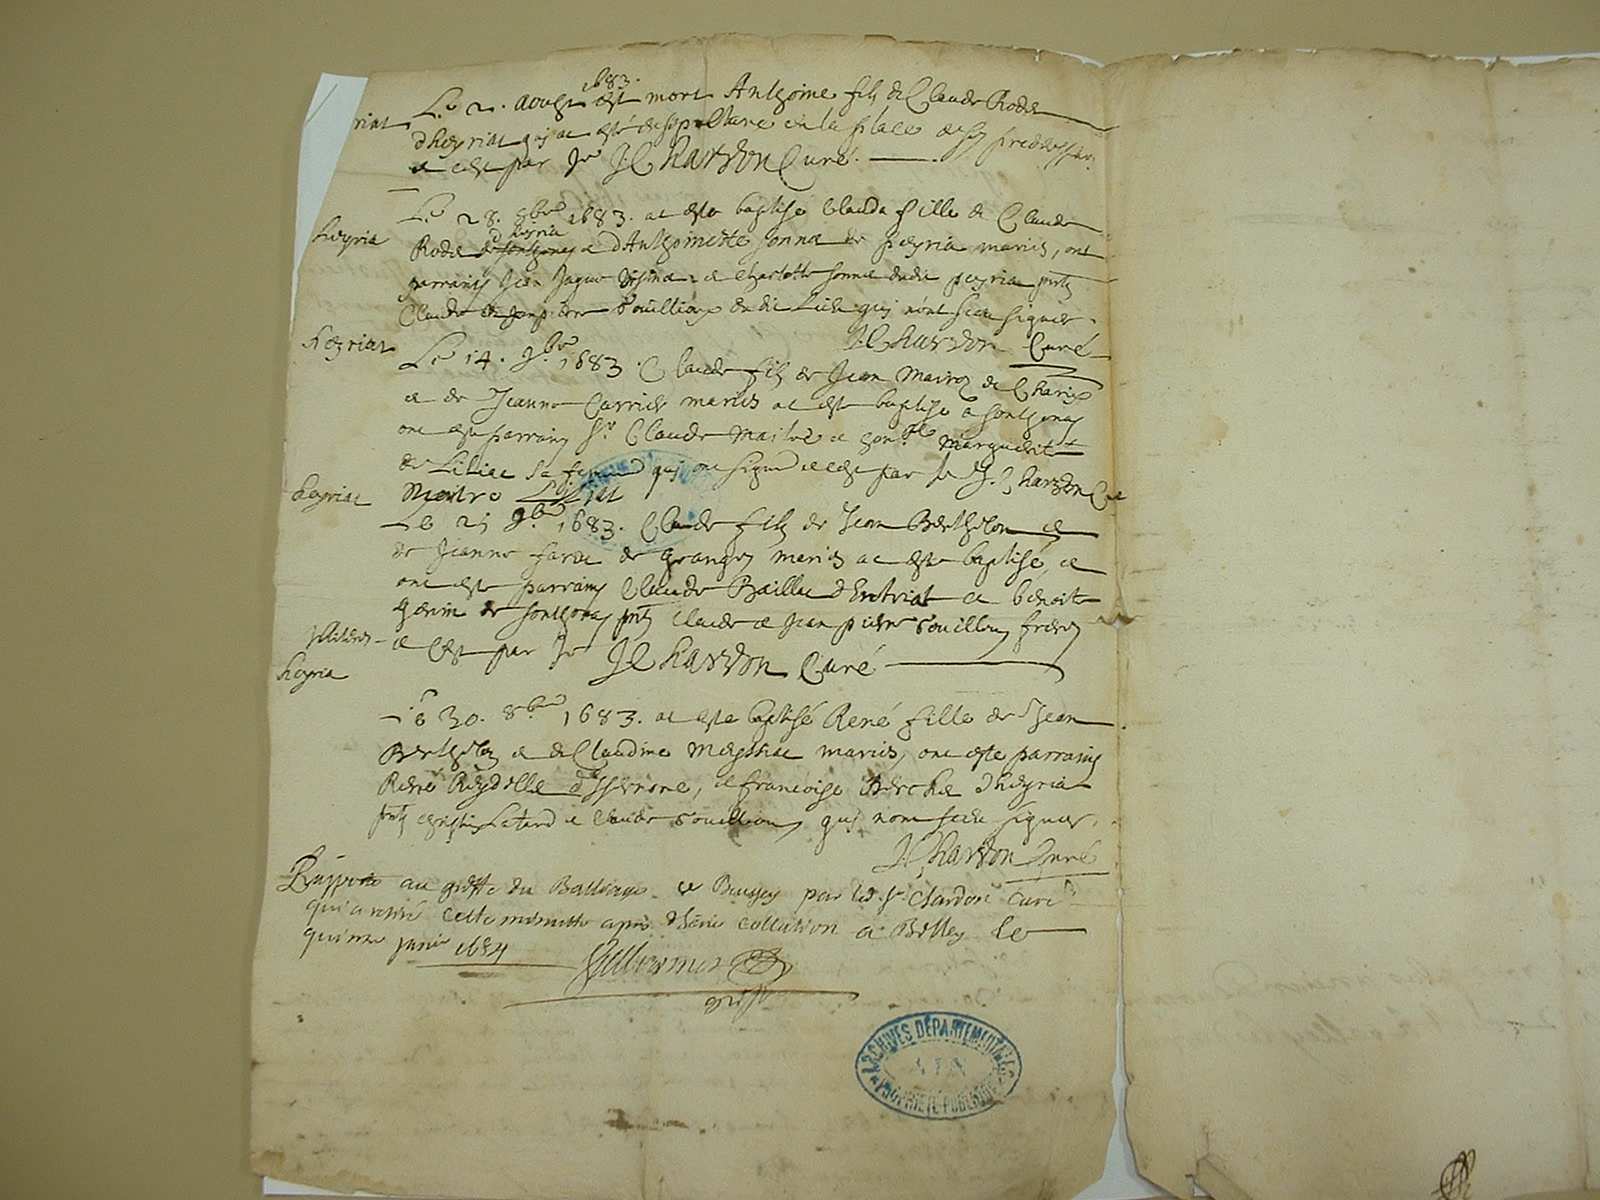 1683.
riat Le 2. aougt est mort Anthoine filz de Claude Rode
dheyriat qui ac esté de sepulture en la place de ses predecess.
a este par Je J. Chardon Curé.
Le 28. 8bre 1683. ac este baptise Clauda fille de Claude
heyria
dheyria
Rode de Sonthonay e d'Anthoinette Jonne de peyria mariés, ont
parrains Jean Jaque e Charlotte Jonne dudit peyria pntz
Claude e Jean pierre Souillioux dudit lieu qui n'ont sceu signer.
J. Chardon Curé
heyriat
Le 14. 9bre 1683. Claude filz de Jean Mairoz de Charix
e de Jeanne Carrier mariés ac este baptise a Sonthonay
ont este parrains Sr Claude Maitre e hon.ble Marguerite
de Liliac Sa femme qui ont signé e este par Je J. Chardon Cure
heyriat Maitre Liliat
Le 21 9bre 1683. Claude filz de Jean Berthelon e
de Jeanne farue de Granges mariés ac este baptisé, e
ont este parrains Claude Baillac d'Entriat e benoite
Genin de Sonthonay pntz Claude e Jean pierre Souillioux freres
e Est par Je J. Chardon Curé
heyria
Le 30. 8bre 1683. ac este baptisé René fille de Jean
Berthelon e de Claudine Meyssiat mariés, ont este parrains
René Reydelle d'Issernore, e francoise Berche d'heyriat
pntz Letard e Claude Souillioux qui nont sceu signer.
J. Chardon Curé
Rapporté au greffe du Balliage de Bugey par led. Sr Chardon Curé
qui a retiré cette minutte apres dheue collation a Belley le
quinze janvier 1684
greff
ARCHIVES DÉPARTEMENTALES
AIN
PROPRIÉTÉ PUBLIQUE